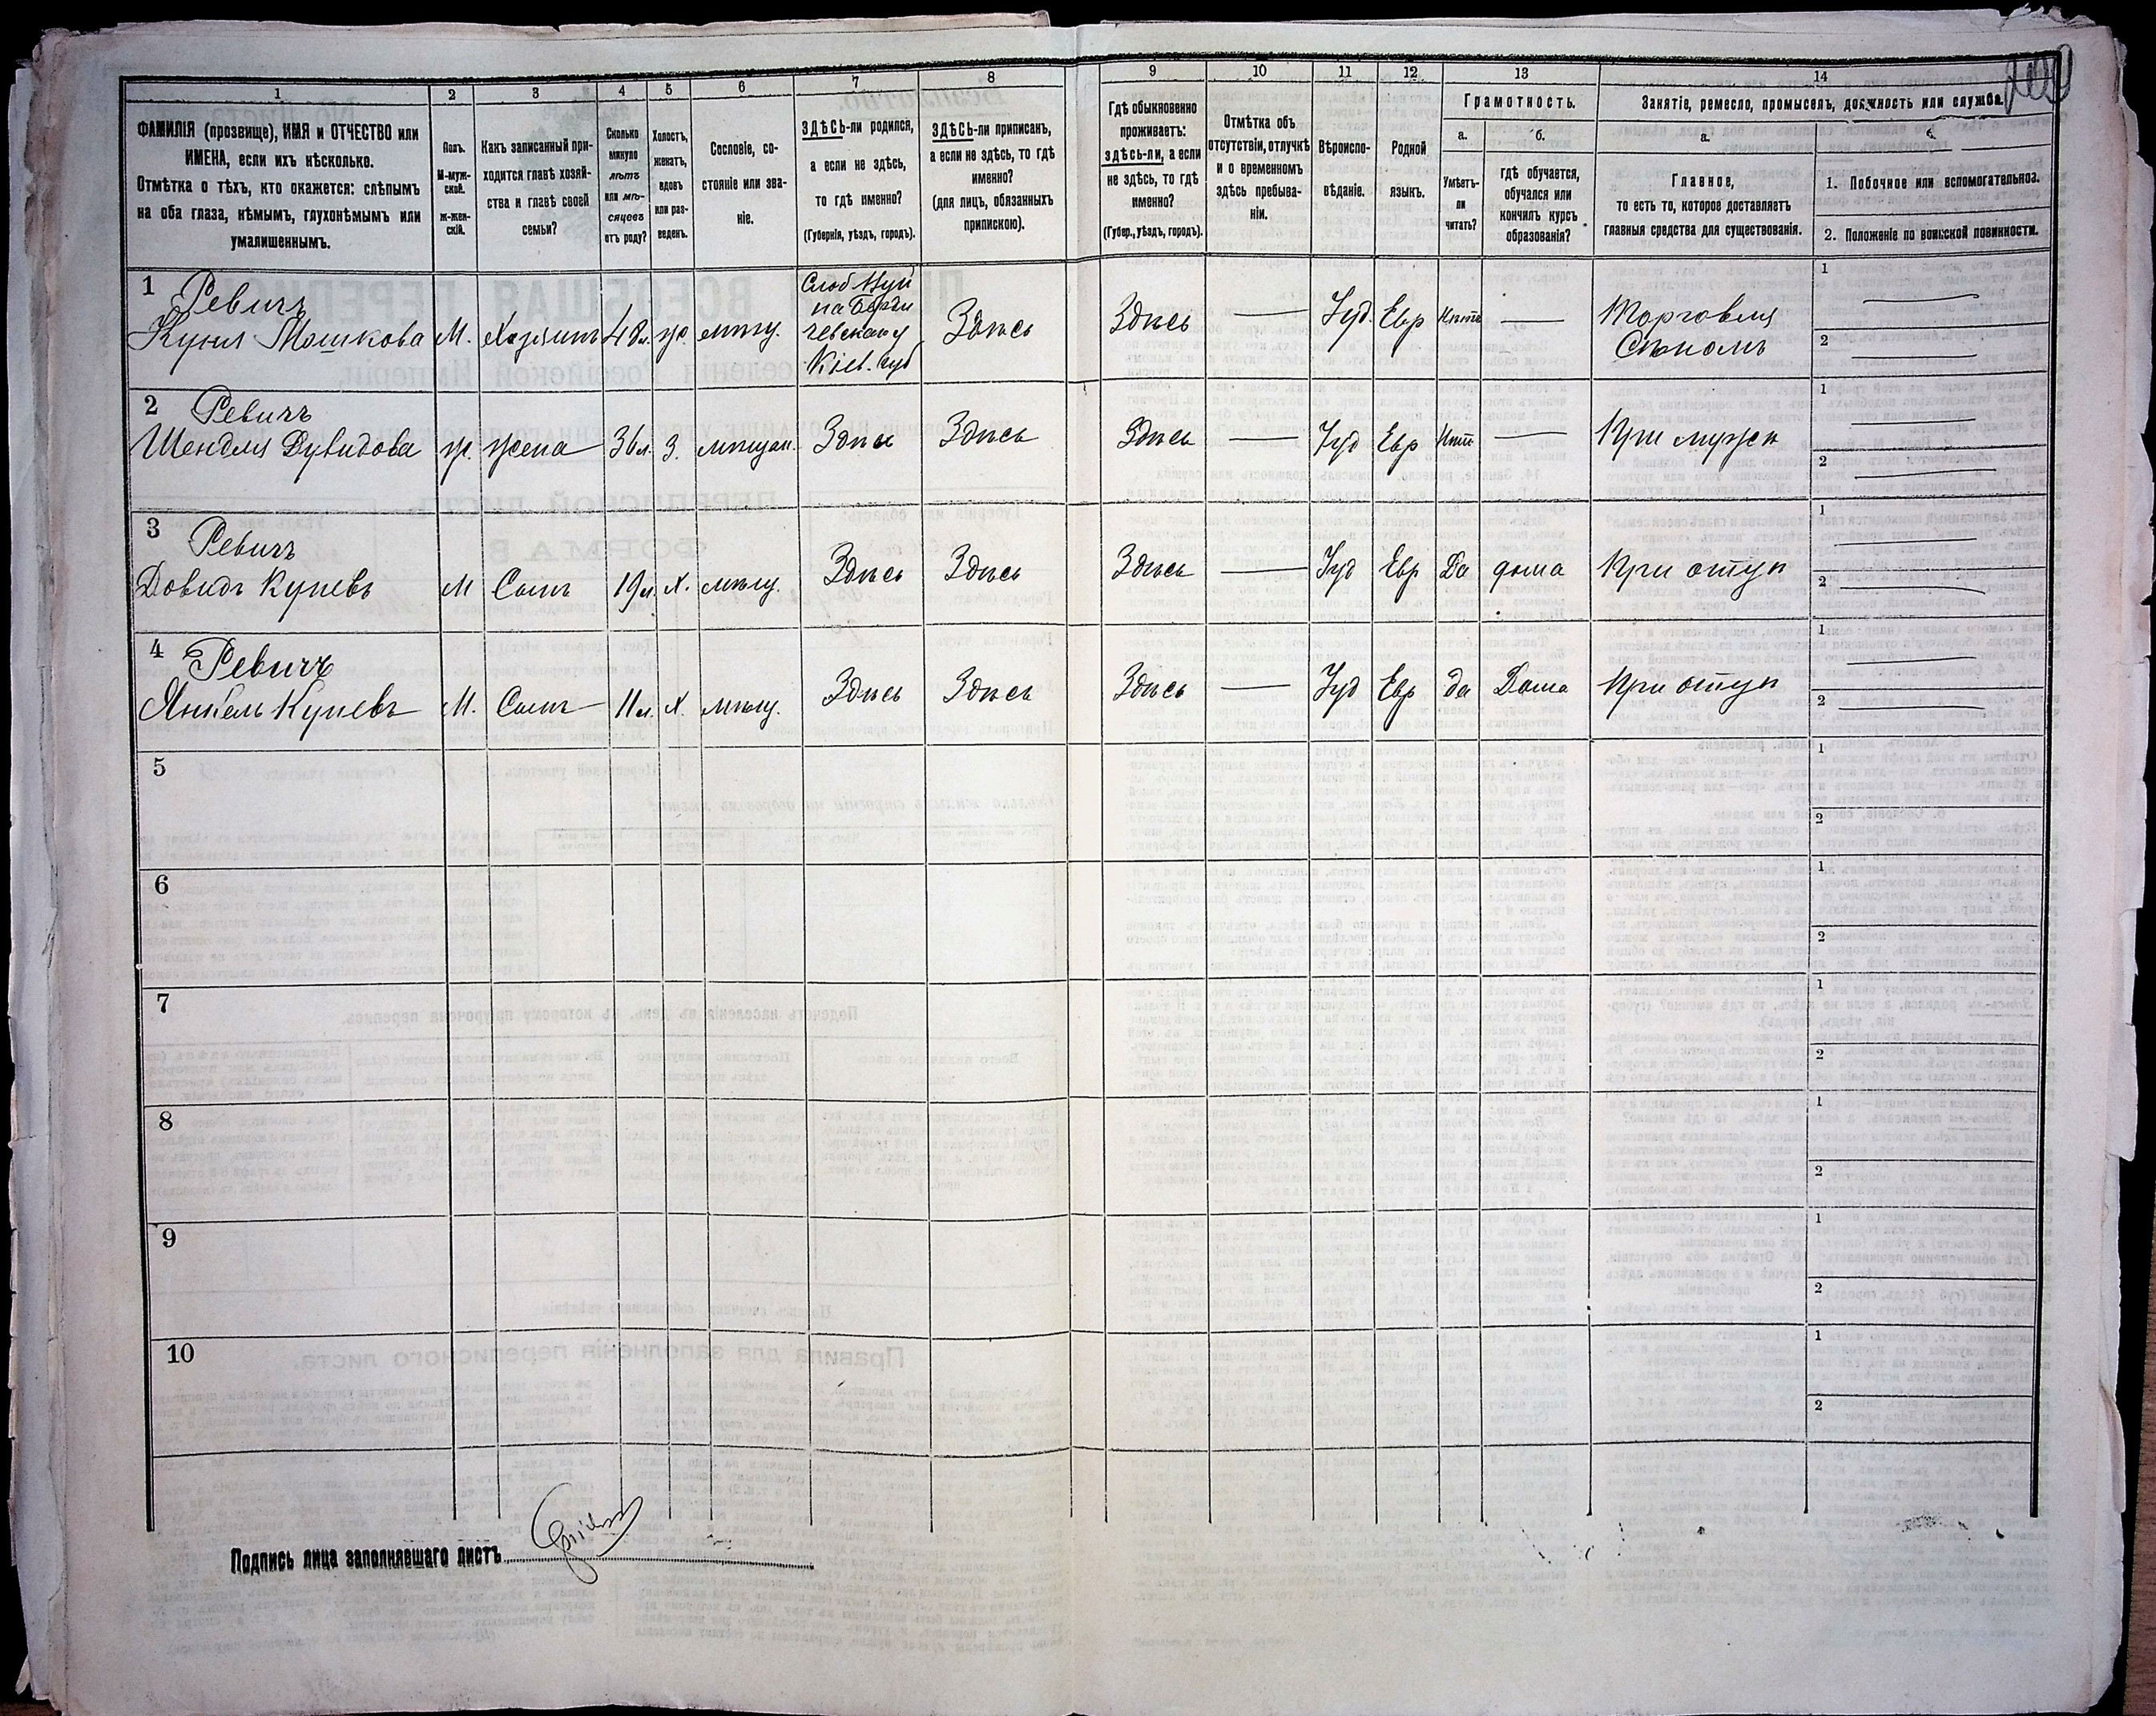 1 2 3 4 5 6 7 8 9 10 11 12 13 14
ФАМИЛІЯ (прозвище), ИМЯ и ОТЧЕСТВО или
ИМЕНА, если ихъ нѣсколько.
Отмѣтка о тѣхъ, кто окажется: слѣпымъ
на оба глаза, нѣмымъ, глухонѣмымъ или
умалишеннымъ.
Полъ.
М-муж-
ской.
ж-жен-
скій.
Какъ записанный при-
ходится главѣ хозяй-
ства и главѣ своей
семьи?
Сколько
минуло
лѣтъ
или мѣ-
сяцевъ
отъ роду?
Холостъ,
женатъ,
вдовъ
или раз-
веденъ.
Сословіе, со-
стояніе или зва-
ніе.
ЗДѢСЬ-ли родился,
а если не здѣсь,
то гдѣ именно?
(Губернія, уѣздъ, городъ).
ЗДѢСЬ-ли приписанъ,
а если не здѣсь, то гдѣ
именно?
(для лицъ, обязанныхъ
припискою).
Гдѣ обыкновенно
проживаетъ:
здѣсь-ли, а если
не здѣсь, то гдѣ
именно?
(Губер., уѣздъ, городъ).
Отмѣтка объ
отсутствіи, отлучкѣ
и о временномъ
здѣсь пребыва-
ніи.
Вѣроиспо-
вѣданіе.
Родной
языкъ.
Грамотность.
а.
Умѣетъ-
ли
читать?
б.
гдѣ обучается,
обучался или
кончилъ курсъ
образованія?
Занятіе, ремесло, промыселъ, должность или служба.
а.
Главное,
то есть то, которое доставляетъ
главныя средства для существованія.
1. Побочное или вспомогательное.
2. Положеніе по воинской повинности.
1 Ревичъ
Куня Мошкова М. Хозяинъ 48 л. ж. мѣщ.
на Берди
чевскаго
Кіев. губ
Здѣсь Здѣсь — Іуд. Евр Нѣтъ — Торговля
Сѣномъ
1
2
2 Ревичъ
Шендля Дувидова ж. жена 36 л. З. мѣщан. Здѣсь Здѣсь Здѣсь — Іуд Евр Нѣтъ — При мужѣ
1
2
3 Ревичъ
Довидъ Куневъ М Сынъ 19 л. Х. мѣщ. Здѣсь Здѣсь Здѣсь — Іуд Евр Да дома При отцѣ
1
2
4 Ревичъ
Янкель Куневъ М. Сынъ 11 л. Х. мѣщ. Здѣсь Здѣсь Здѣсь — Іуд Евр да Дома При отцѣ
1
2
5
1
2
6
1
2
7
1
2
8
1
2
9
1
2
10
1
2
Подпись лица заполнявшаго листъ